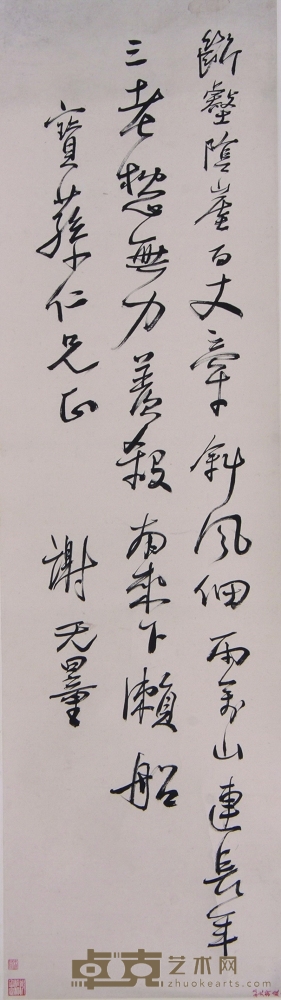 斷壑陰崖百丈牽斜風細雨萬山連長年
三老愁無力羨殺南來下瀨船
寶蓀仁兄正 謝无量
卓克艺术网
zhuokearts.com